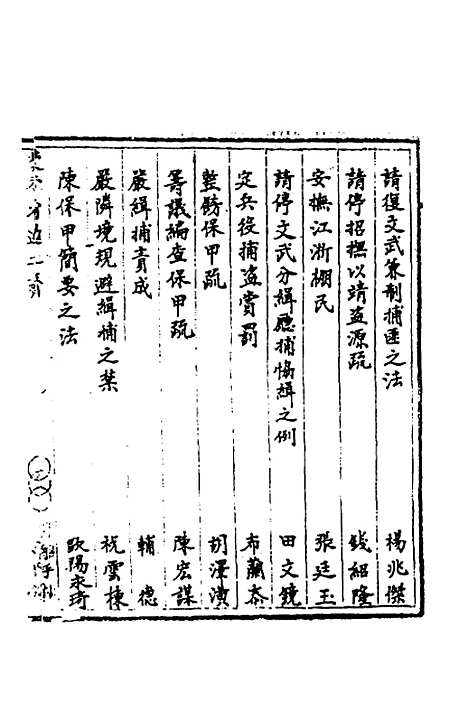 請復文武兼制捕匪之法 楊兆傑
請停招撫以靖盜源疏 錢紹隆
安撫江浙棚民 張廷玉
請停文武分緝應捕協緝之例 田文鏡
定兵役捕盜賞罰 布蘭泰
整飭保甲疏 胡澤潢
籌議編查保甲疏 陳宏謀
嚴緝捕責成 輔德
嚴隣境規避緝捕之禁 祝雲棟
陳保甲簡要之法 歐陽永琦